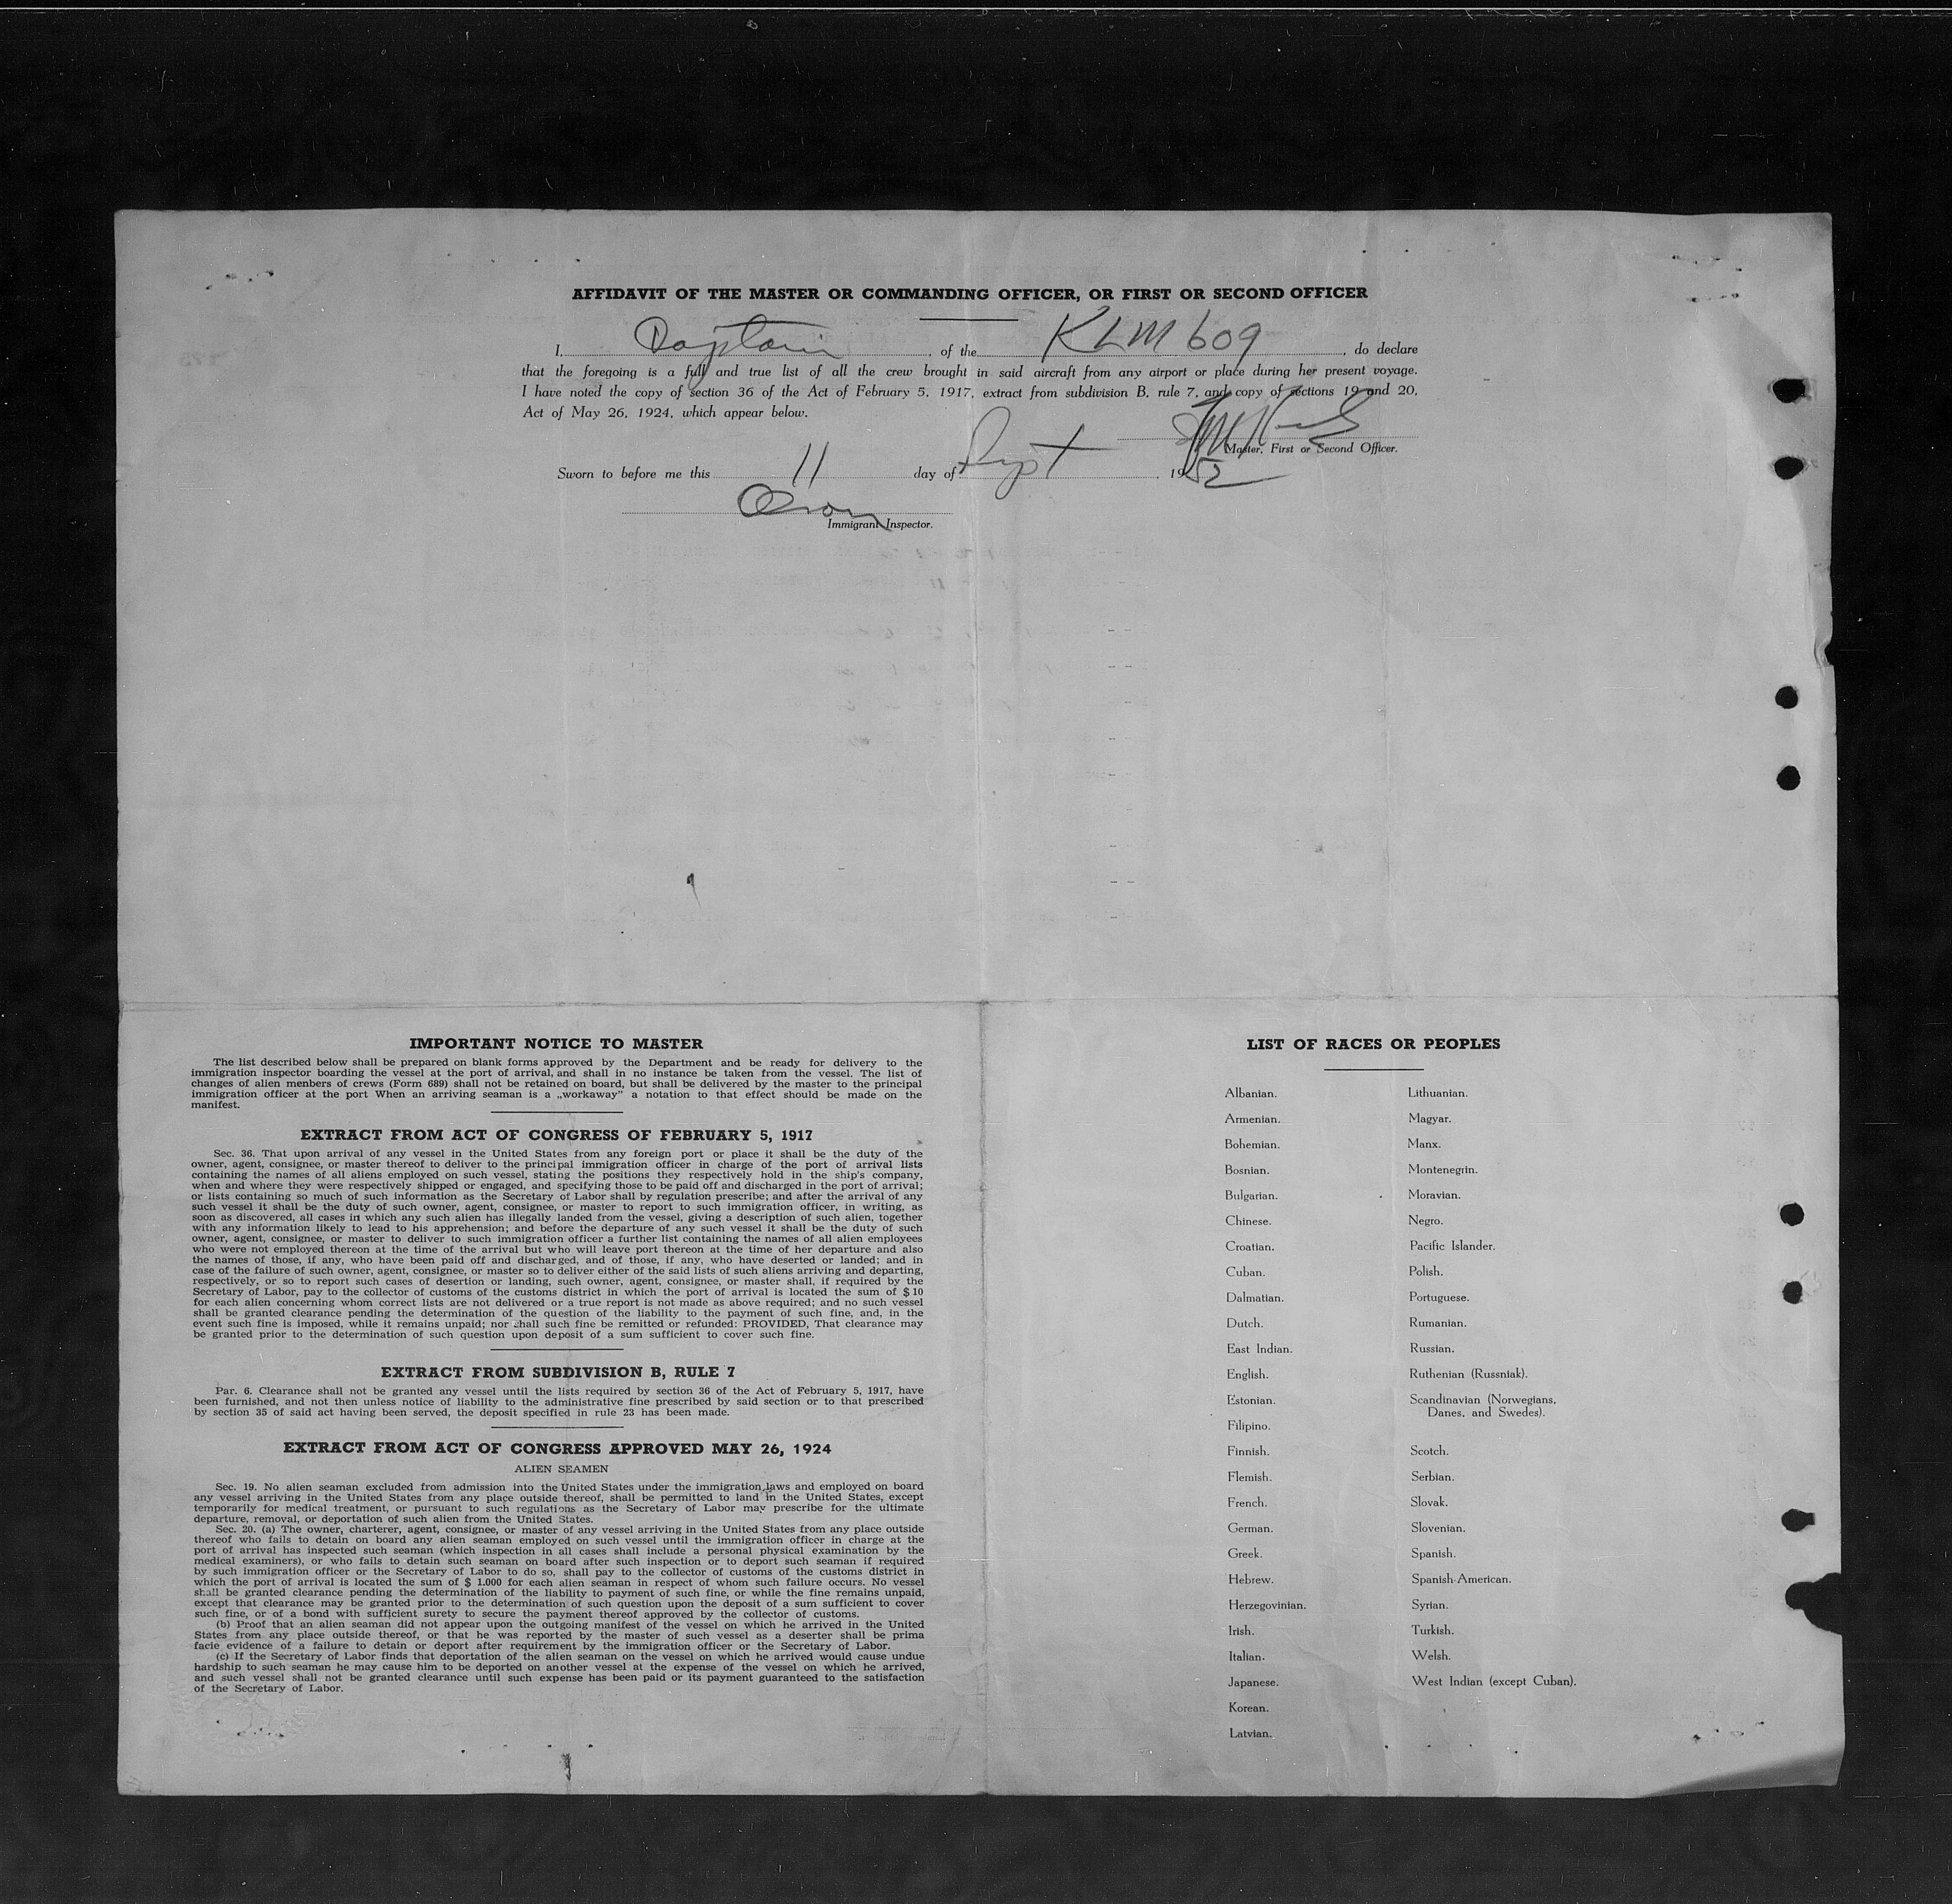 AFFIDAVIT OF THE MASTER OR COMMANDING OFFICER, OR FIRST OR SECOND OFFICER
I, Captain, of the KLM 609, do declare
that the foregoing is a full and true list of all the crew brought in said aircraft from any airport or place during her present voyage.
I have noted the copy of section 36 of the Act of February 5, 1917, extract from subdivision B, rule 7, and copy of sections 19 and 20,
Act of May 26, 1924, which appear below.
Master, First or Second Officer.
Sworn to before me this 11 day of Sept, 1952
Immigrant Inspector.
IMPORTANT NOTICE TO MASTER
The list described below shall be prepared on blank forms approved by the Department and be ready for delivery to the
immigration inspector boarding the vessel at the port of arrival, and shall in no instance be taken from the vessel. The list of
changes of alien menbers of crews (Form 689) shall not be retained on board, but shall be delivered by the master to the principal
immigration officer at the port When an arriving seaman is a „workaway” a notation to that effect should be made on the
manifest.
EXTRACT FROM ACT OF CONGRESS OF FEBRUARY 5, 1917
Sec. 36. That upon arrival of any vessel in the United States from any foreign port or place it shall be the duty of the
owner, agent, consignee, or master thereof to deliver to the principal immigration officer in charge of the port of arrival lists
containing the names of all aliens employed on such vessel, stating the positions they respectively hold in the ship's company,
when and where they were respectively shipped or engaged, and specifying those to be paid off and discharged in the port of arrival;
or lists containing so much of such information as the Secretary of Labor shall by regulation prescribe; and after the arrival of any
such vessel it shall be the duty of such owner, agent, consignee, or master to report to such immigration officer, in writing, as
soon as discovered, all cases in which any such alien has illegally landed from the vessel, giving a description of such alien, together
with any information likely to lead to his apprehension; and before the departure of any such vessel it shall be the duty of such
owner, agent, consignee, or master to deliver to such immigration officer a further list containing the names of all alien employees
who were not employed thereon at the time of the arrival but who will leave port thereon at the time of her departure and also
the names of those, if any, who have been paid off and discharged, and of those, if any, who have deserted or landed; and in
case of the failure of such owner, agent, consignee, or master so to deliver either of the said lists of such aliens arriving and departing,
respectively, or so to report such cases of desertion or landing, such owner, agent, consignee, or master shall, if required by the
Secretary of Labor, pay to the collector of customs of the customs district in which the port of arrival is located the sum of $ 10
for each alien concerning whom correct lists are not delivered or a true report is not made as above required; and no such vessel
shall be granted clearance pending the determination of the question of the liability to the payment of such fine, and, in the
event such fine is imposed, while it remains unpaid; nor shall such fine be remitted or refunded: PROVIDED, That clearance may
be granted prior to the determination of such question upon deposit of a sum sufficient to cover such fine.
EXTRACT FROM SUBDIVISION B, RULE 7
Par. 6. Clearance shall not be granted any vessel until the lists required by section 36 of the Act of February 5, 1917, have
been furnished, and not then unless notice of liability to the administrative fine prescribed by said section or to that prescribed
by section 35 of said act having been served, the deposit specified in rule 23 has been made.
EXTRACT FROM ACT OF CONGRESS APPROVED MAY 26, 1924
ALIEN SEAMEN
Sec. 19. No alien seaman excluded from admission into the United States under the immigration laws and employed on board
any vessel arriving in the United States from any place outside thereof, shall be permitted to land in the United States, except
temporarily for medical treatment, or pursuant to such regulations as the Secretary of Labor may prescribe for the ultimate
departure, removal, or deportation of such alien from the United States.
Sec. 20. (a) The owner, charterer, agent, consignee, or master of any vessel arriving in the United States from any place outside
thereof who fails to detain on board any alien seaman employed on such vessel until the immigration officer in charge at the
port of arrival has inspected such seaman (which inspection in all cases shall include a personal physical examination by the
medical examiners), or who fails to detain such seaman on board after such inspection or to deport such seaman if required
by such immigration officer or the Secretary of Labor to do so, shall pay to the collector of customs of the customs district in
which the port of arrival is located the sum of $ 1.000 for each alien seaman in respect of whom such failure occurs. No vessel
shall be granted clearance pending the determination of the liability to payment of such fine, or while the fine remains unpaid,
except that clearance may be granted prior to the determination of such question upon the deposit of a sum sufficient to cover
such fine, or of a bond with sufficient surety to secure the payment thereof approved by the collector of customs.
(b) Proof that an alien seaman did not appear upon the outgoing manifest of the vessel on which he arrived in the United
States from any place outside thereof, or that he was reported by the master of such vessel as a deserter shall be prima
facie evidence of a failure to detain or deport after requirement by the immigration officer or the Secretary of Labor.
(c) If the Secretary of Labor finds that deportation of the alien seaman on the vessel on which he arrived would cause undue
hardship to such seaman he may cause him to be deported on another vessel at the expense of the vessel on which he arrived,
and such vessel shall not be granted clearance until such expense has been paid or its payment guaranteed to the satisfaction
of the Secretary of Labor.
LIST OF RACES OR PEOPLES
Albanian.
Armenian.
Bohemian.
Bosnian.
Bulgarian.
Chinese.
Croatian.
Cuban.
Dalmatian.
Dutch.
East Indian.
English.
Estonian.
Filipino.
Finnish.
Flemish.
French.
German.
Greek.
Hebrew.
Herzegovinian.
Irish.
Italian.
Japanese.
Korean.
Latvian.
Lithuanian.
Magyar.
Manx.
Montenegrin.
Moravian.
Negro.
Pacific Islander.
Polish.
Portuguese.
Rumanian.
Russian.
Ruthenian (Russniak).
Scandinavian (Norwegians,
Danes, and Swedes).
Scotch.
Serbian.
Slovak.
Slovenian.
Spanish.
Spanish-American.
Syrian.
Turkish.
Welsh.
West Indian (except Cuban).